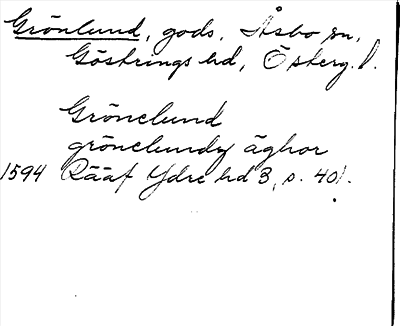 Grönlund, gods, Åsbo sn,
Göstrings hd, Österg. l.
Grönelund
grönelundz äghor
1594 Rääf Ydre hd 3, s. 401.